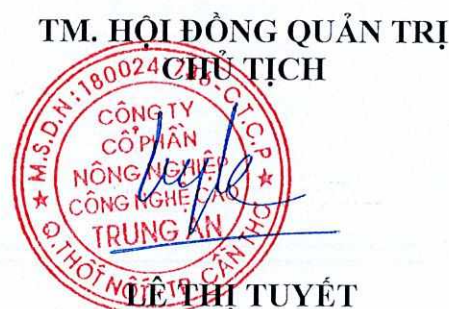 TM. HỘI ĐỒNG QUẢN TRỊ
CHỦ TỊCH
M.S.D.N:180024 -C.T.C.P
CÔNG TY
CỔ PHẦN
NÔNG NGHIỆP
CÔNG NGHỆ CAO
TRUNG AN
Q.THỐT NỐT-TP.CẦN THƠ
LÊ THỊ TUYẾT